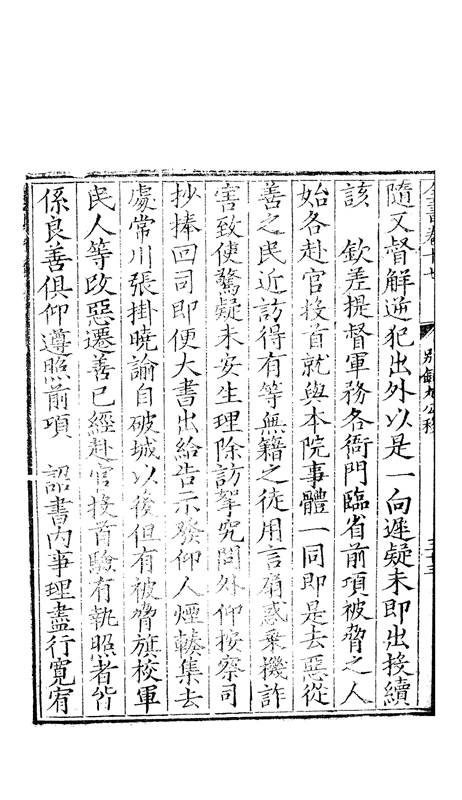 全書卷十七
別錄九公移
隨又督解逆犯出外以是一向遲疑未即出投續
該 欽差提督軍務各衙門臨省前項被脅之人
始各赴官投首就與本院事體一同即是去惡從
善之民近訪得有等無籍之徒用言扇惑乘機詐
害致使驚疑未安生理除訪拏究問外仰按察司
抄捧回司即便大書出給告示發仰人煙輳集去
處常川張掛曉諭自破城以後但有被脅旗校軍
民人等改惡遷善已經赴官投首驗有執照者皆
係良善俱仰遵照前項 詔書內事理盡行寬宥